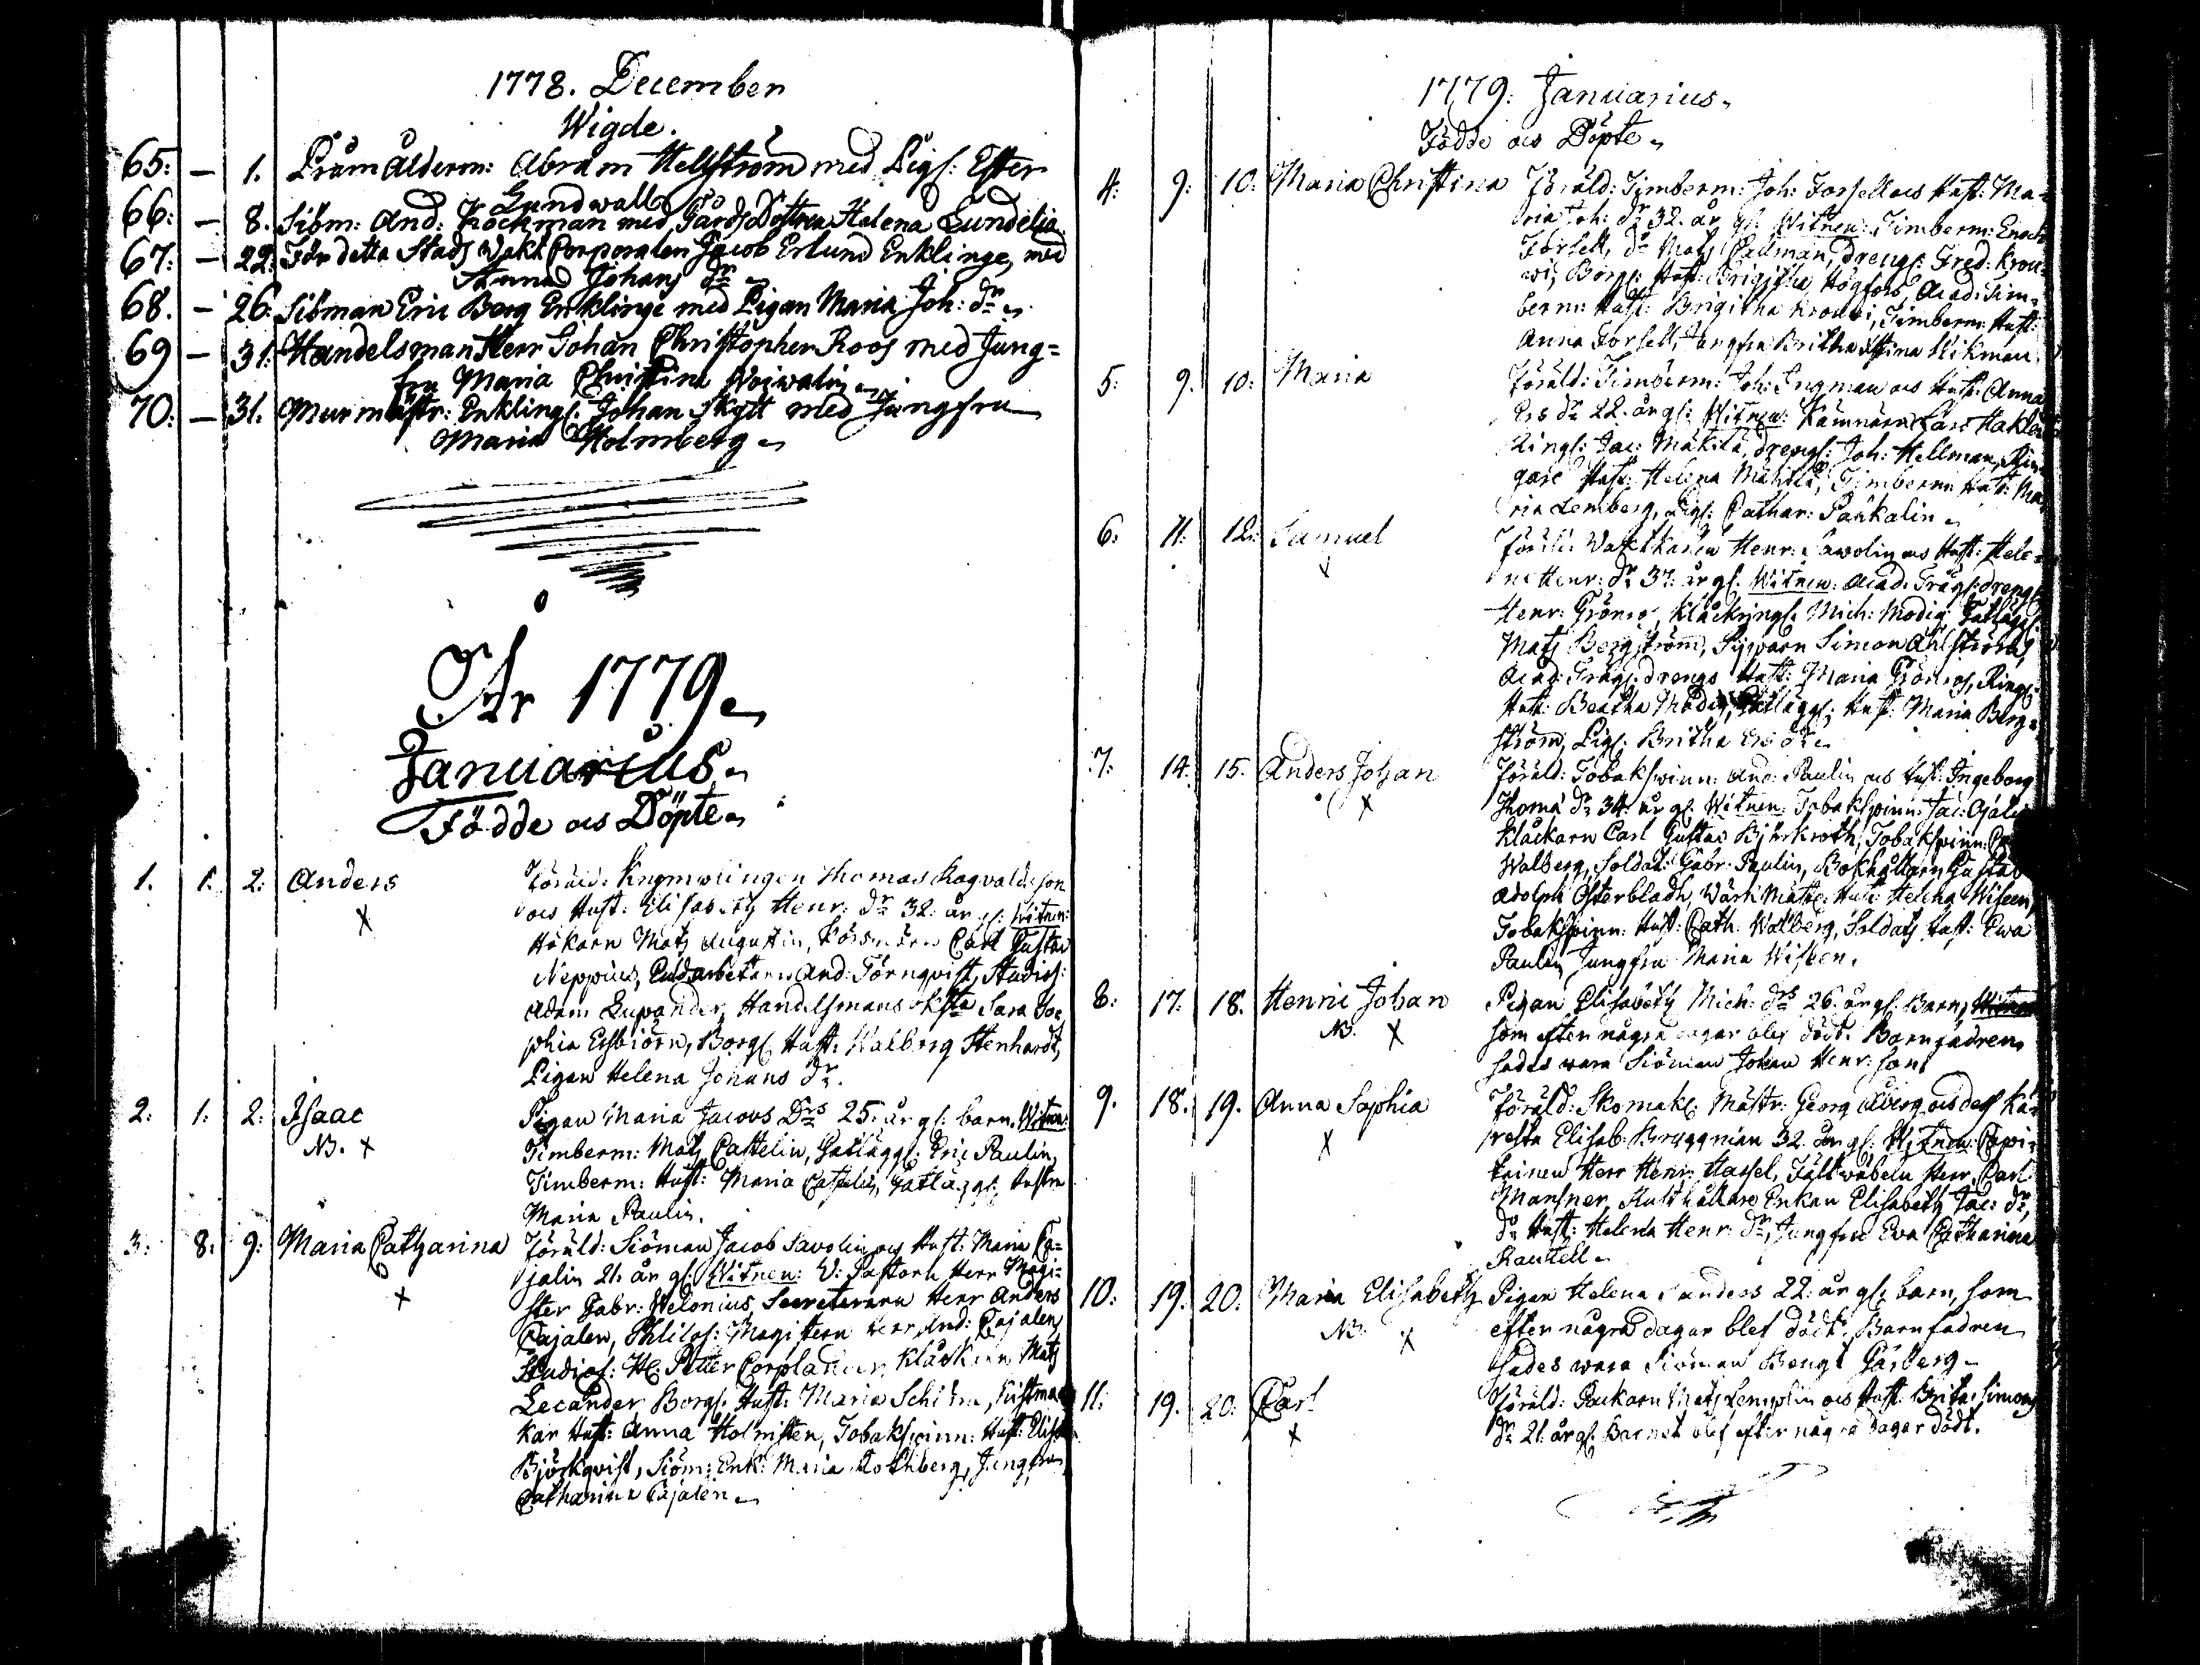 1778. December
Wigde.
65: — 1. Pråm Ålderm: Abram Hellström med Pigs: Ester
Lundwall
66: — 8. Siöm: And: Kockman med Gårds Dottren Helena Lundelia
67: — 22: För detta Stads Wakt Corporalen Jacob Erlund Enklinge, med
Anna Johans dr
68. — 26: Siöman Eric Berg Enklinge med Pigan Maria Joh: dr
69 — 31: Handelsman Herr Johan Christopher Roos med Jung=
fru Maria Christina Woiwalin
70: — 31. Murmästr: Enklings: Johan Skytt med Jungfru
Maria Holmberg
År 1779
Januarius
Födde och Döpte
1. 1. 2: Anders Föräld: Thomas Ragvalds son
och Hust: Elisabeth Henr: dr 32: år gl: Witnen:
Hökarn Mats Augustin, Carl Gustav
Neppius, And: Törnqvist, Studios:
Adam Lupander, Handelsmans Sara So=
phia Essbiörn, Borgs: Hust: Walborg Stenhardt,
Pigan Helena Johans dr.
2: 1: 2: Isaac Pigan Maria Jacobs Drs 25: år gl: barn. Witnen:
NB. x Timberm: Mats Cattelin, Gatläggs: Eric Paulin,
Timberm: Hust: Maria Gatläggs: Hustru
Maria Paulin.
3: 8: 9: Maria Catharina Föräld: Siöman Jacob Savolin och Hust: Maria Ca=
jalin 21: år gl: Witnen: V: Pastorn Herr Magi=
ster Gabr: Welonius, Secreteraren Herr Anders
Cajalen, Philos: Magistern Herr And: Cajalen,
Studios: H: Petter Corplander, Klåckarn Mats
Lecander, Borgs: Hust: Maria
kar Hust: Anna Holmsten, Tobakspinn: Hust: Elisa
Björkqvist, Siöm: Enk: Maria Rothberg, Jungfru
Catharina Cajalen
1779: Januarius
Födde och Döpte
4: 9: 10: Maria Christina Föräld: Timberm: Joh: Forsell och Hust: Ma=
ria Joh: dr 32. år gl: Witnen: Timberm: Enoch
Forsell, do Mats Callman, drengs: Fred: Krou=
wi, Borgs: Hust: Brigitha Högfors, Acad: Tim=
berm: Hust: Brigitha Krouwi, Timberm: Hust:
Anna Forsell, Jungfru Britha Stina Wikman.
5: 9. 10: Maria Föräld: Timberm: Joh: Ingman och Hust: Anna
Ers dr 22. år gl: Witnen: Lars
Rings: Jac: Mäkilä, drengs: Joh: Hellman, Rin=
gare Hust: Helena Mäkilä, Timberm: Hust: Ma=
ria Lemberg, Pigs: Cathar: Paukalin
6: 11: 12: Samuel Föräld: Henr: Sawolin och Hust: Hele=
na Henr: dr 37: år gl: Witnen: Acad: Trägs: drengs
Henr: Grönros, Klåckrings: Mich: Modig, Gatläggs:
Mats Bergström, Simon Ahlström,
Acad: Trägs: drengs Hust: Maria Grönros, Rings:
Hust: Beatha Modig, Gatläggs: Hust: Maria Berg=
ström, Pigs: Britha
7. 14: 15. Anders Johan Föräld: Tobakspinn: And: Paulin och Hust: Ingeborg
Thomæ dr 34: år gl: Witnen: Tobakspinn: Jac:
Klåckarn Carl Gustav Björkroth, Tobakspinn:
Walberg, Soldat: Gabr: Paulin, Bokhållarn Gustav
Adolph Österbladh, Wärkmäst: Hust: Helena Wiseen,
Tobakspinn: Hust: Cath: Walberg, Soldats Hust: Ewa
Paulin, Jungfru Maria Wiseen.
8: 17: 18. Henric Johan Pigan Elisabeth Mich: drs 26: år gl: Barn,
NB. x som efter några dagar blef dödt. Barnfadren
sades wara Siöman Johan Henr: son
9. 18. 19. Anna Sophia Föräld: Skomak: Mästr: Georg Åberg och dess kä=
resta Elisab: Bryggman 32. år gl: Witnen: Capi=
teinen Herr Henr: Hassel, Fältwäbeln Herr Carl
Mansner, Enkan Elisabeth Jac: dr,
do Hust: Helena Henr: dr, Jungfru Ewa Catharina
Rautell
10: 19. 20: Maria Elisabeth Pigan Helena Anders 22: år gl: barn, som
NB. x efter några dagar blef dödt. Barnfadren
sades wara Siöman Bengt
11: 19. 20: Carl Föräld: Packarn Mats Templin och Hust: Brita Simons
dr 21: år gl: Barnet blef efter några dagar dödt.